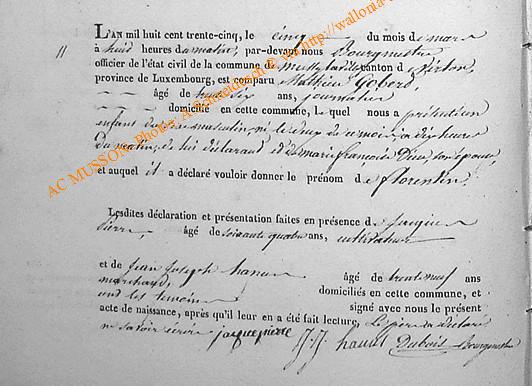 11
L'AN mil huit cent trente-cinq, le cinq du mois de mars
à huit heures du matin, par-devant nous Bourgmestre
officier de l'état civil de la commune de Mussy la Ville canton d Virton,
province de Luxembourg, est comparu Mathieu Gobert,
âgé de ans, journalier
domicilié en cette commune, Lequel nous a présenté un
enfant du sexe masculin, né le cinq de ce mois à dix heures
du matin, de lui déclarant et de marie françoise son épouse,
et auquel il a déclaré vouloir donner le prénom de florentin,
Lesdites déclaration et présentation faites en présence de
pierre, âgé de soixante quatre ans, cultivateur
et de jean Joseph âgé de trente neuf ans
marchand, domiciliés en cette commune, et
ont les temoins signé avec nous le présent
acte de naissance, après qu'il leur en a été fait lecture, Le père a déclaré
ne savoir écrire, jacque pierre J. J. Dubois Bourgmestre
AC MUSSON Photos A. Schneidesch © vu http://wallonia